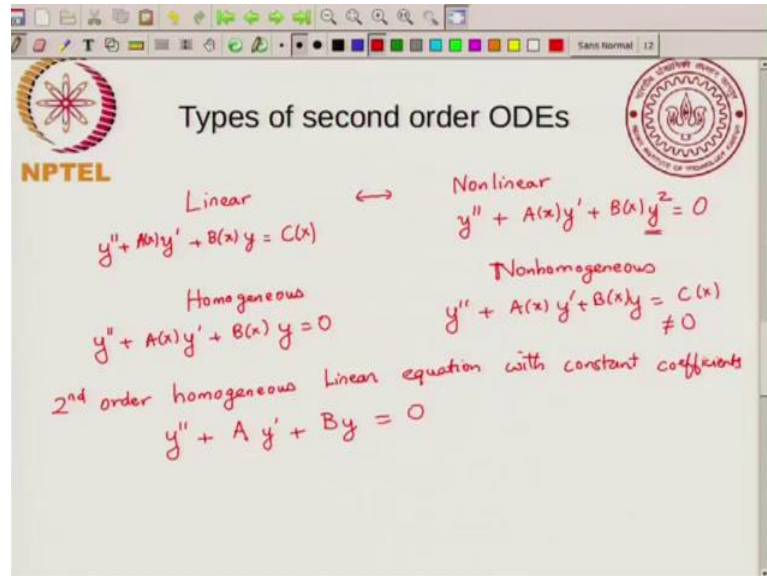 Sans Normal 12
Types of second order ODEs
NPTEL
Linear ↔ Nonlinear
y'' + A(x)y' + B(x)y = C(x)
y'' + A(x)y' + B(x)y² = 0
Homogeneous
Nonhomogeneous
y'' + A(x)y' + B(x)y = 0
y'' + A(x)y' + B(x)y = C(x)
≠ 0
2nd order homogeneous Linear equation with constant coefficients
y'' + A y' + By = 0